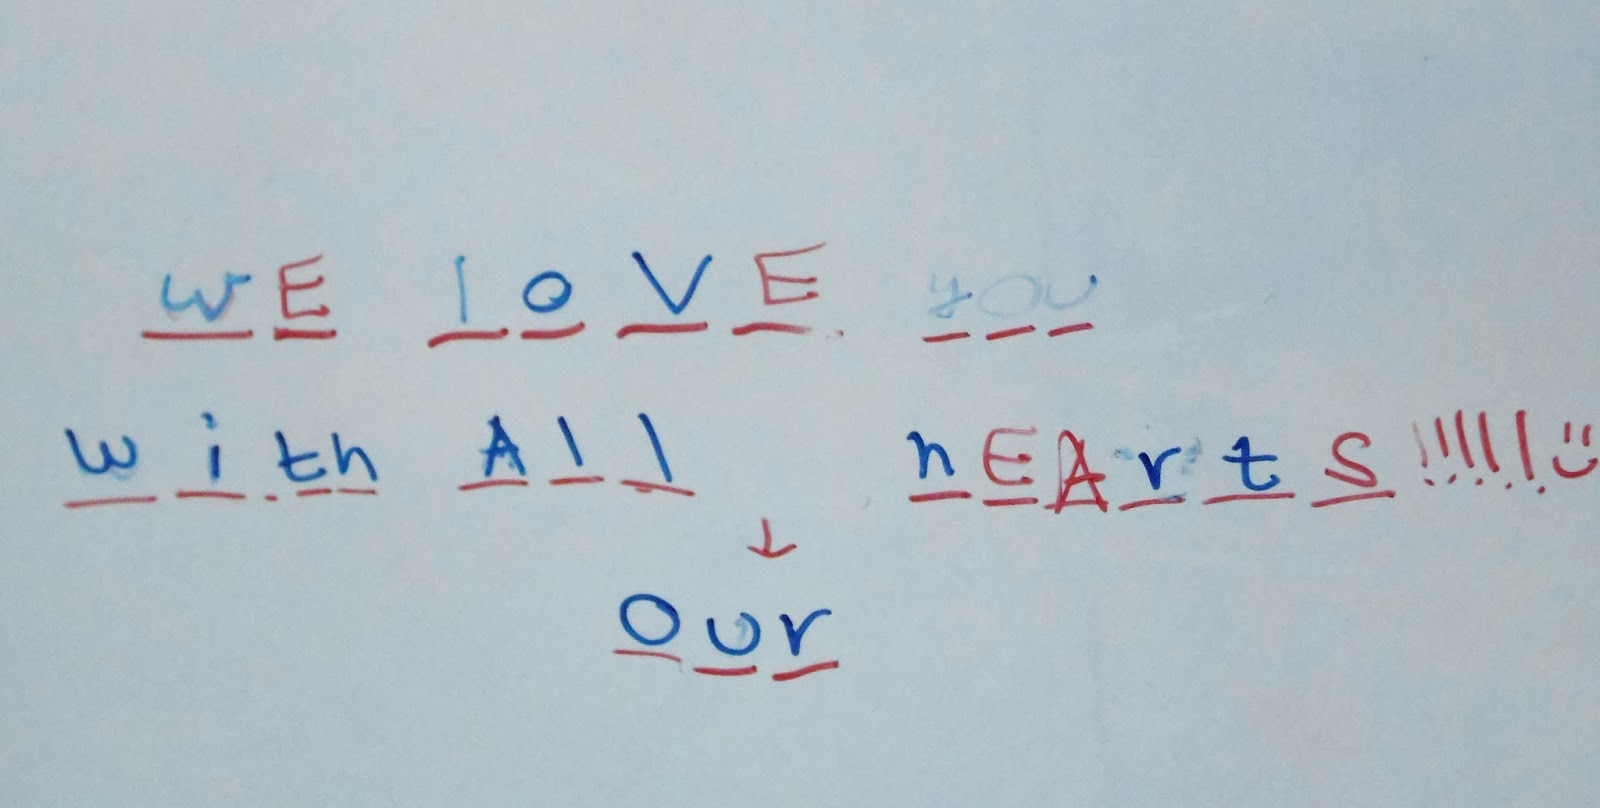 wE loVE you
with All hEArts!!!!!!ü
↓
our